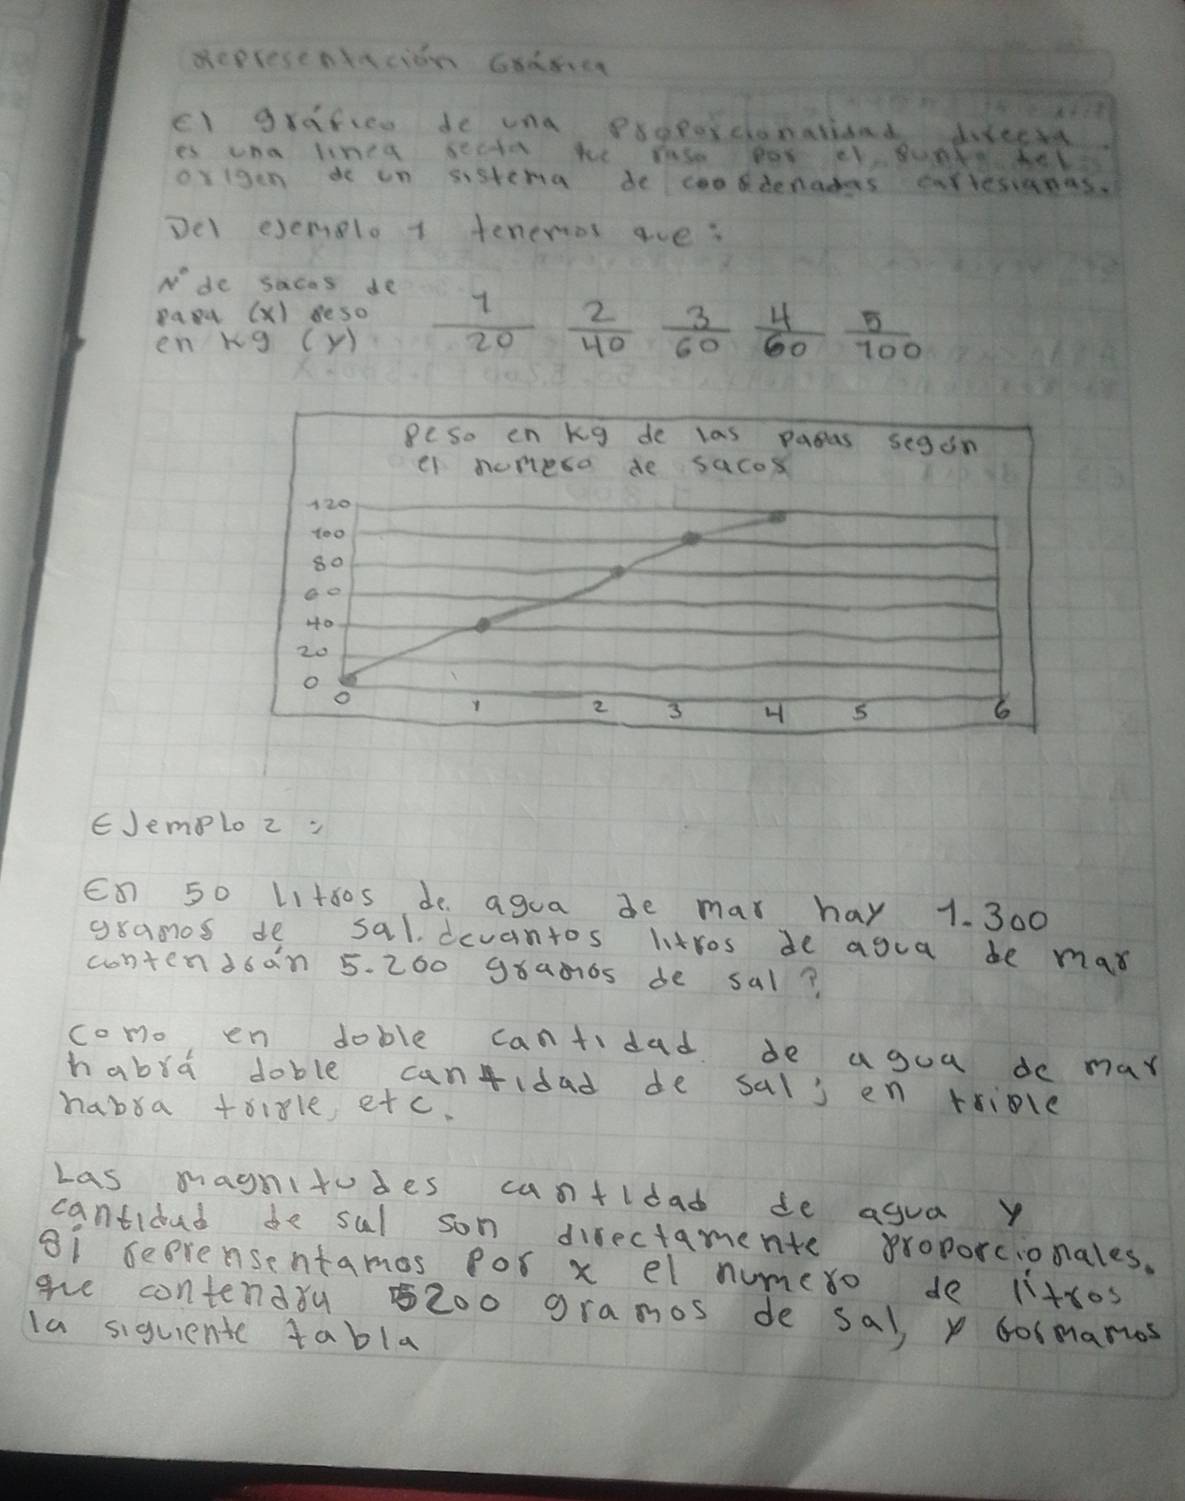 Representación Gráfica
El gráfico de una Proporcionalidad directa
es una linea recta que pasa por el punto del
origen de un sistema de coordenadas cartesianas.
Del ejemplo 1 tenemos que:
N° de sacos de
papa (x) peso
en kg (y)
1 2 3 4 5
20 40 60 60 100
Peso en kg de las papas según
el numero de sacos
120
100
80
60
40
20
0
0 1 2 3 4 5 6
Ejemplo 2:
En 50 litros de agua de mar hay 1.300
gramos de sal. dcuantos litros de agua de mar
contendrán 5.200 gramos de sal?
como en doble cantidad de agua de mar
habrá doble cantidad de sal; en triple
habra triple, etc.
Las magnitudes cantidad de agua y
cantidad de sal son directamente proporcionales.
Si reprensentamos por x el numero de litros
que contendra 5200 gramos de sal, y formamos
la siguiente tabla